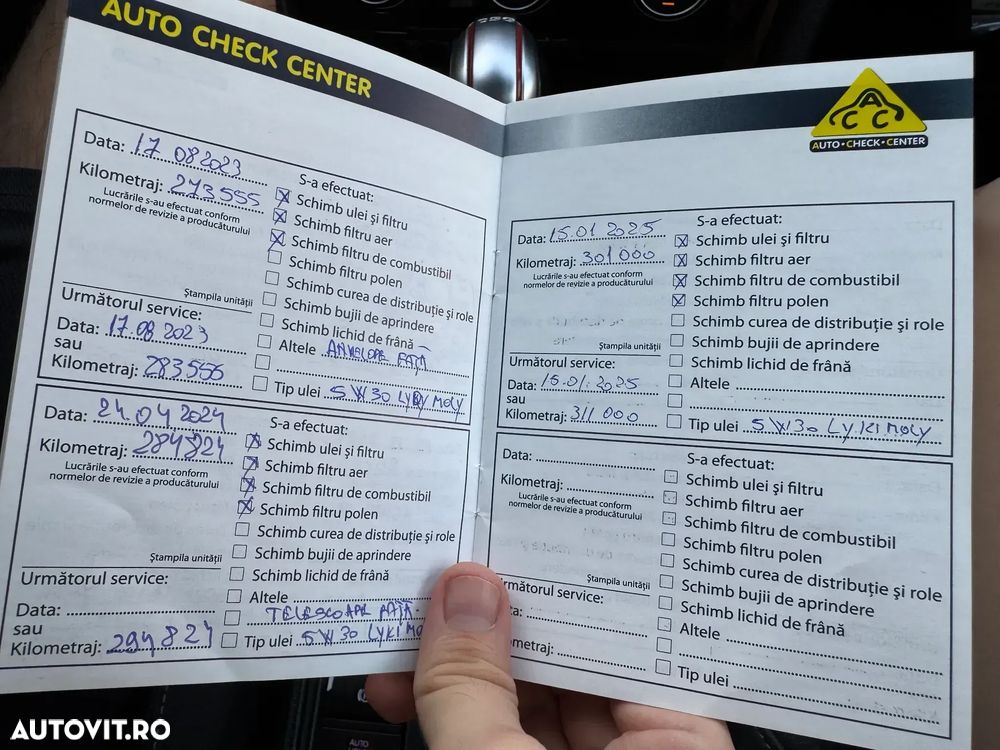 AUTO CHECK CENTER
Data: 17 08 2023
Kilometraj: 273555
Lucrările s-au efectuat conform
normelor de revizie a producătorului
Ștampila unității
Următorul service:
Data: 17.08 2023
sau
Kilometraj: 283555
S-a efectuat:
Schimb ulei și filtru
Schimb filtru aer
Schimb filtru de combustibil
Schimb filtru polen
Schimb curea de distribuție și role
Schimb bujii de aprindere
Schimb lichid de frână
Altele ANVELOPE FAȚĂ
Tip ulei 5W30 LYQY MOLY
Data: 24 04 2024
Kilometraj: 284824
Lucrările s-au efectuat conform
normelor de revizie a producătorului
Ștampila unității
Următorul service:
Data:
sau
Kilometraj: 294824
S-a efectuat:
Schimb ulei și filtru
Schimb filtru aer
Schimb filtru de combustibil
Schimb filtru polen
Schimb curea de distribuție și role
Schimb bujii de aprindere
Schimb lichid de frână
Altele
TELESCOAPE FAȚĂ
Tip ulei 5W30 LYKI MO
ACC
AUTO•CHECK•CENTER
Data: 15.01 2025
Kilometraj: 301000
Lucrările s-au efectuat conform
normelor de revizie a producătorului
Ștampila unității
Următorul service:
Data: 15.01.2025
sau
Kilometraj: 311 000
S-a efectuat:
Schimb ulei și filtru
Schimb filtru aer
Schimb filtru de combustibil
Schimb filtru polen
Schimb curea de distribuție și role
Schimb bujii de aprindere
Schimb lichid de frână
Altele
Tip ulei 5W30 LYKI MOLY
Data:
Kilometraj:
Lucrările s-au efectuat conform
normelor de revizie a producătorului
Ștampila unității
rmătorul service:
ta:
ometraj:
S-a efectuat:
Schimb ulei și filtru
Schimb filtru aer
Schimb filtru de combustibil
Schimb filtru polen
Schimb curea de distribuție și role
Schimb bujii de aprindere
Schimb lichid de frână
Altele
Tip ulei
AUTO
AUTOVIT.RO